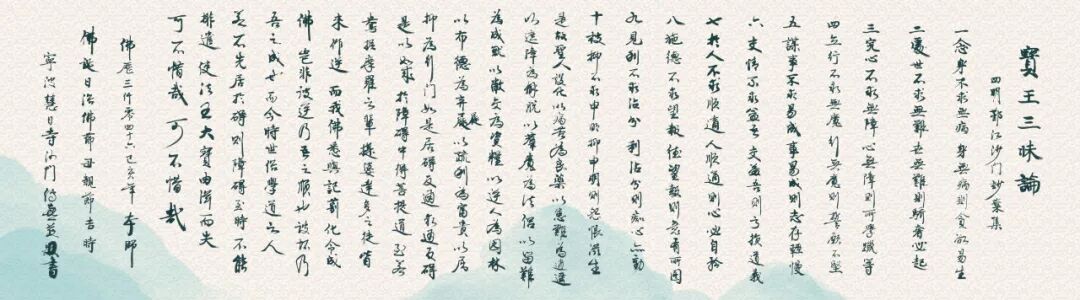 寶王三昧論
四明鄞江沙門妙葉集
一念身不求無病 身無病則貪欲易生
二處世不求無難 世無難則驕奢必起
三究心不求無障 心無障則所學躐等
四立行不求無魔 行無魔則誓願不堅
五謀事不求易成 事易成則志存輕慢
六交情不求益吾 交益吾則虧損道義
七於人不求順適 人順適則心必自矜
八施德不求望報 德望報則意有所圖
九見利不求沾分 利沾分則癡心亦動
十被抑不求申明 抑申明則怨恨滋生
是故聖人設化以病苦為良藥以患難為逍遙
以遮障為解脫以羣魔為法侶以留難
為成就以敝交為資糧以逆人為園林
以布德為棄屣以疏利為富貴以屈
抑為行門如是居礙反通求通反礙
是以如來於障礙中得菩提道至若
鴦掘摩羅之輩提婆達多之徒皆
來作逆而我佛悉與記莂化令成
佛豈非彼逆乃吾之順也彼壞乃
吾之成也而今時世俗學道之人
若不先居於礙則障礙至時不能
排遣使法王大寶由茲而失
可不惜哉可不惜哉
佛曆三仟零四十六己亥年 本師
佛誕日浴佛節母親節吉時
寧波慧日寺沙門書